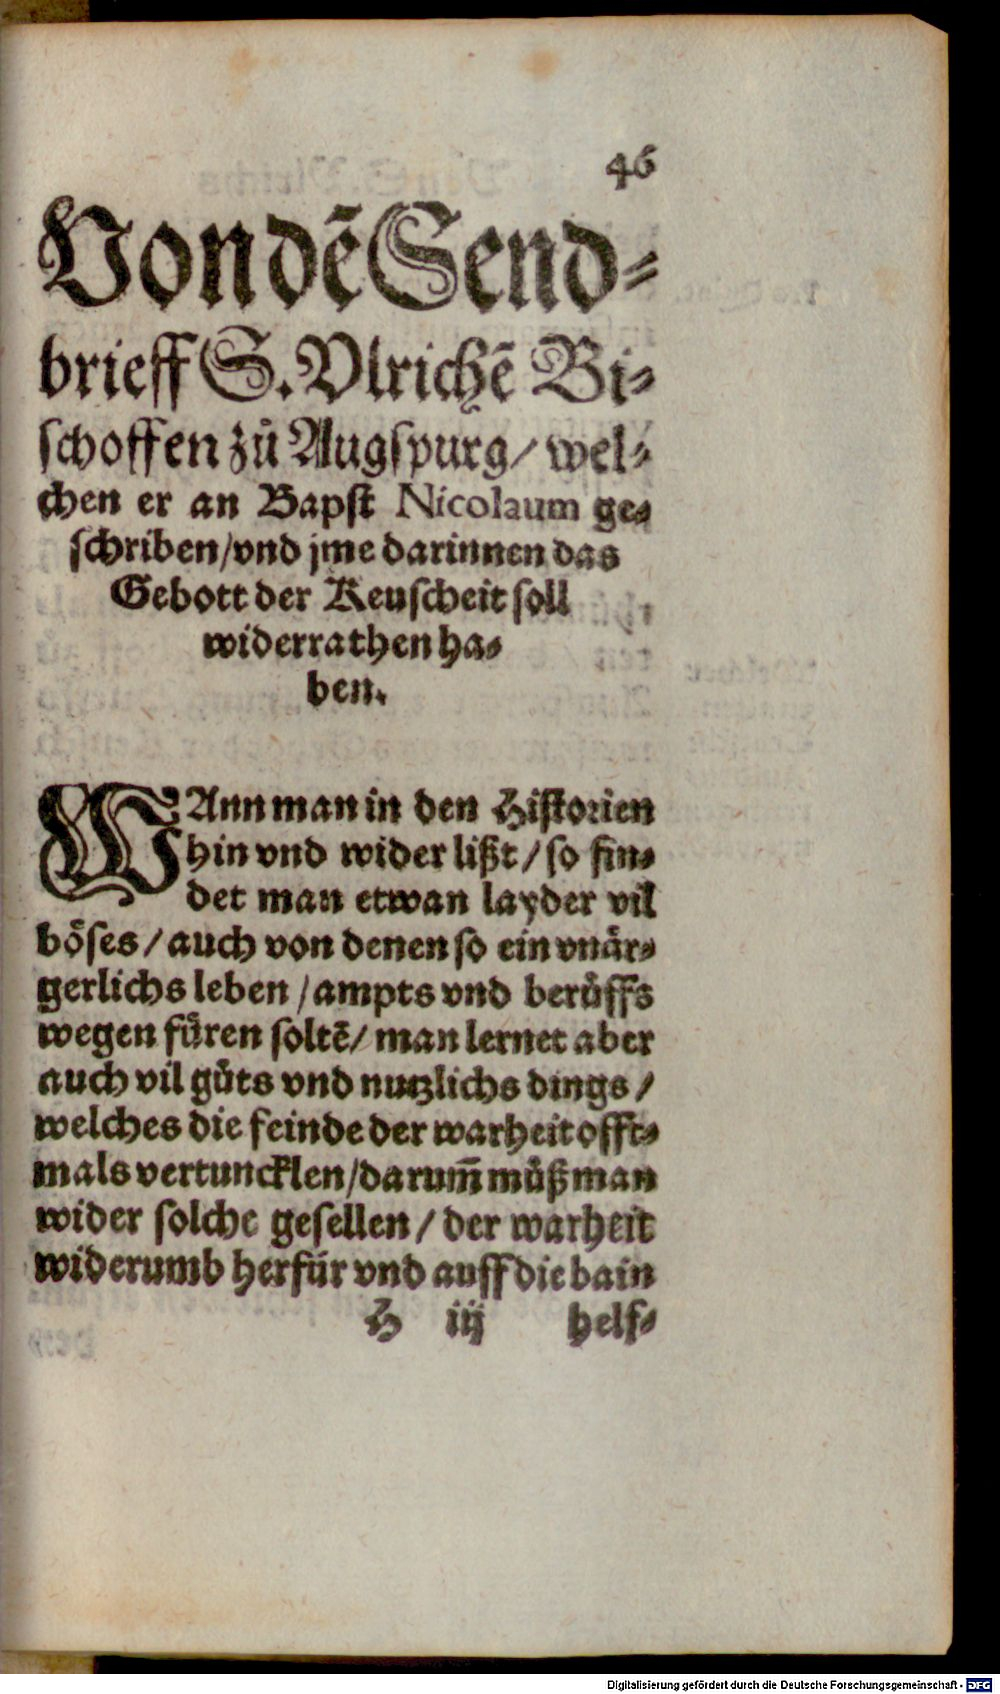 46
Von dē Send⸗
brieff S. Vlrichē Bi⸗
schoffen zů Augspurg/ wel⸗
chen er an Bapst Nicolaum ge⸗
schriben/vnd jme darinnen das
Gebott der Keuscheit soll
widerrathen ha⸗
ben.
WAnn man in den Historien
hin vnd wider lißt/ so fin⸗
det man etwan layder vil
böses/ auch von denen so ein vnär⸗
gerlichs leben/ ampts vnd berůffs
wegen fůren soltē/ man lernet aber
auch vil gůts vnd nutzlichs dings/
welches die feinde der warheit offt⸗
mals vertuncklen/darum̄ můß man
wider solche gesellen/ der warheit
widerumb herfür vnd auff die bain
H iij helf⸗
Digitalisierung gefördert durch die Deutsche Forschungsgemeinschaft - DFG